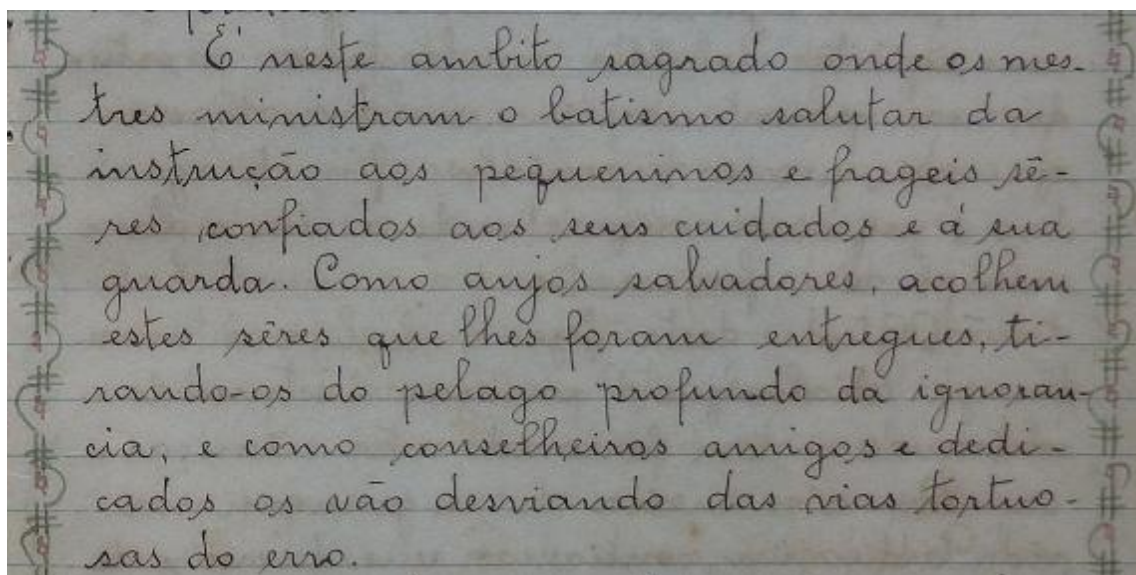 É neste ambito sagrado onde os mes-
tres ministram o batismo salutar da
instrução aos pequeninos e frageis sê-
res confiados aos seus cuidados e á sua
guarda. Como anjos salvadores, acolhem
estes sêres que lhes foram entregues, ti-
rando-os do pelago profundo da ignoran-
cia, e como conselheiros amigos e dedi-
cados os vão desviando das vias tortuo-
sas do erro.